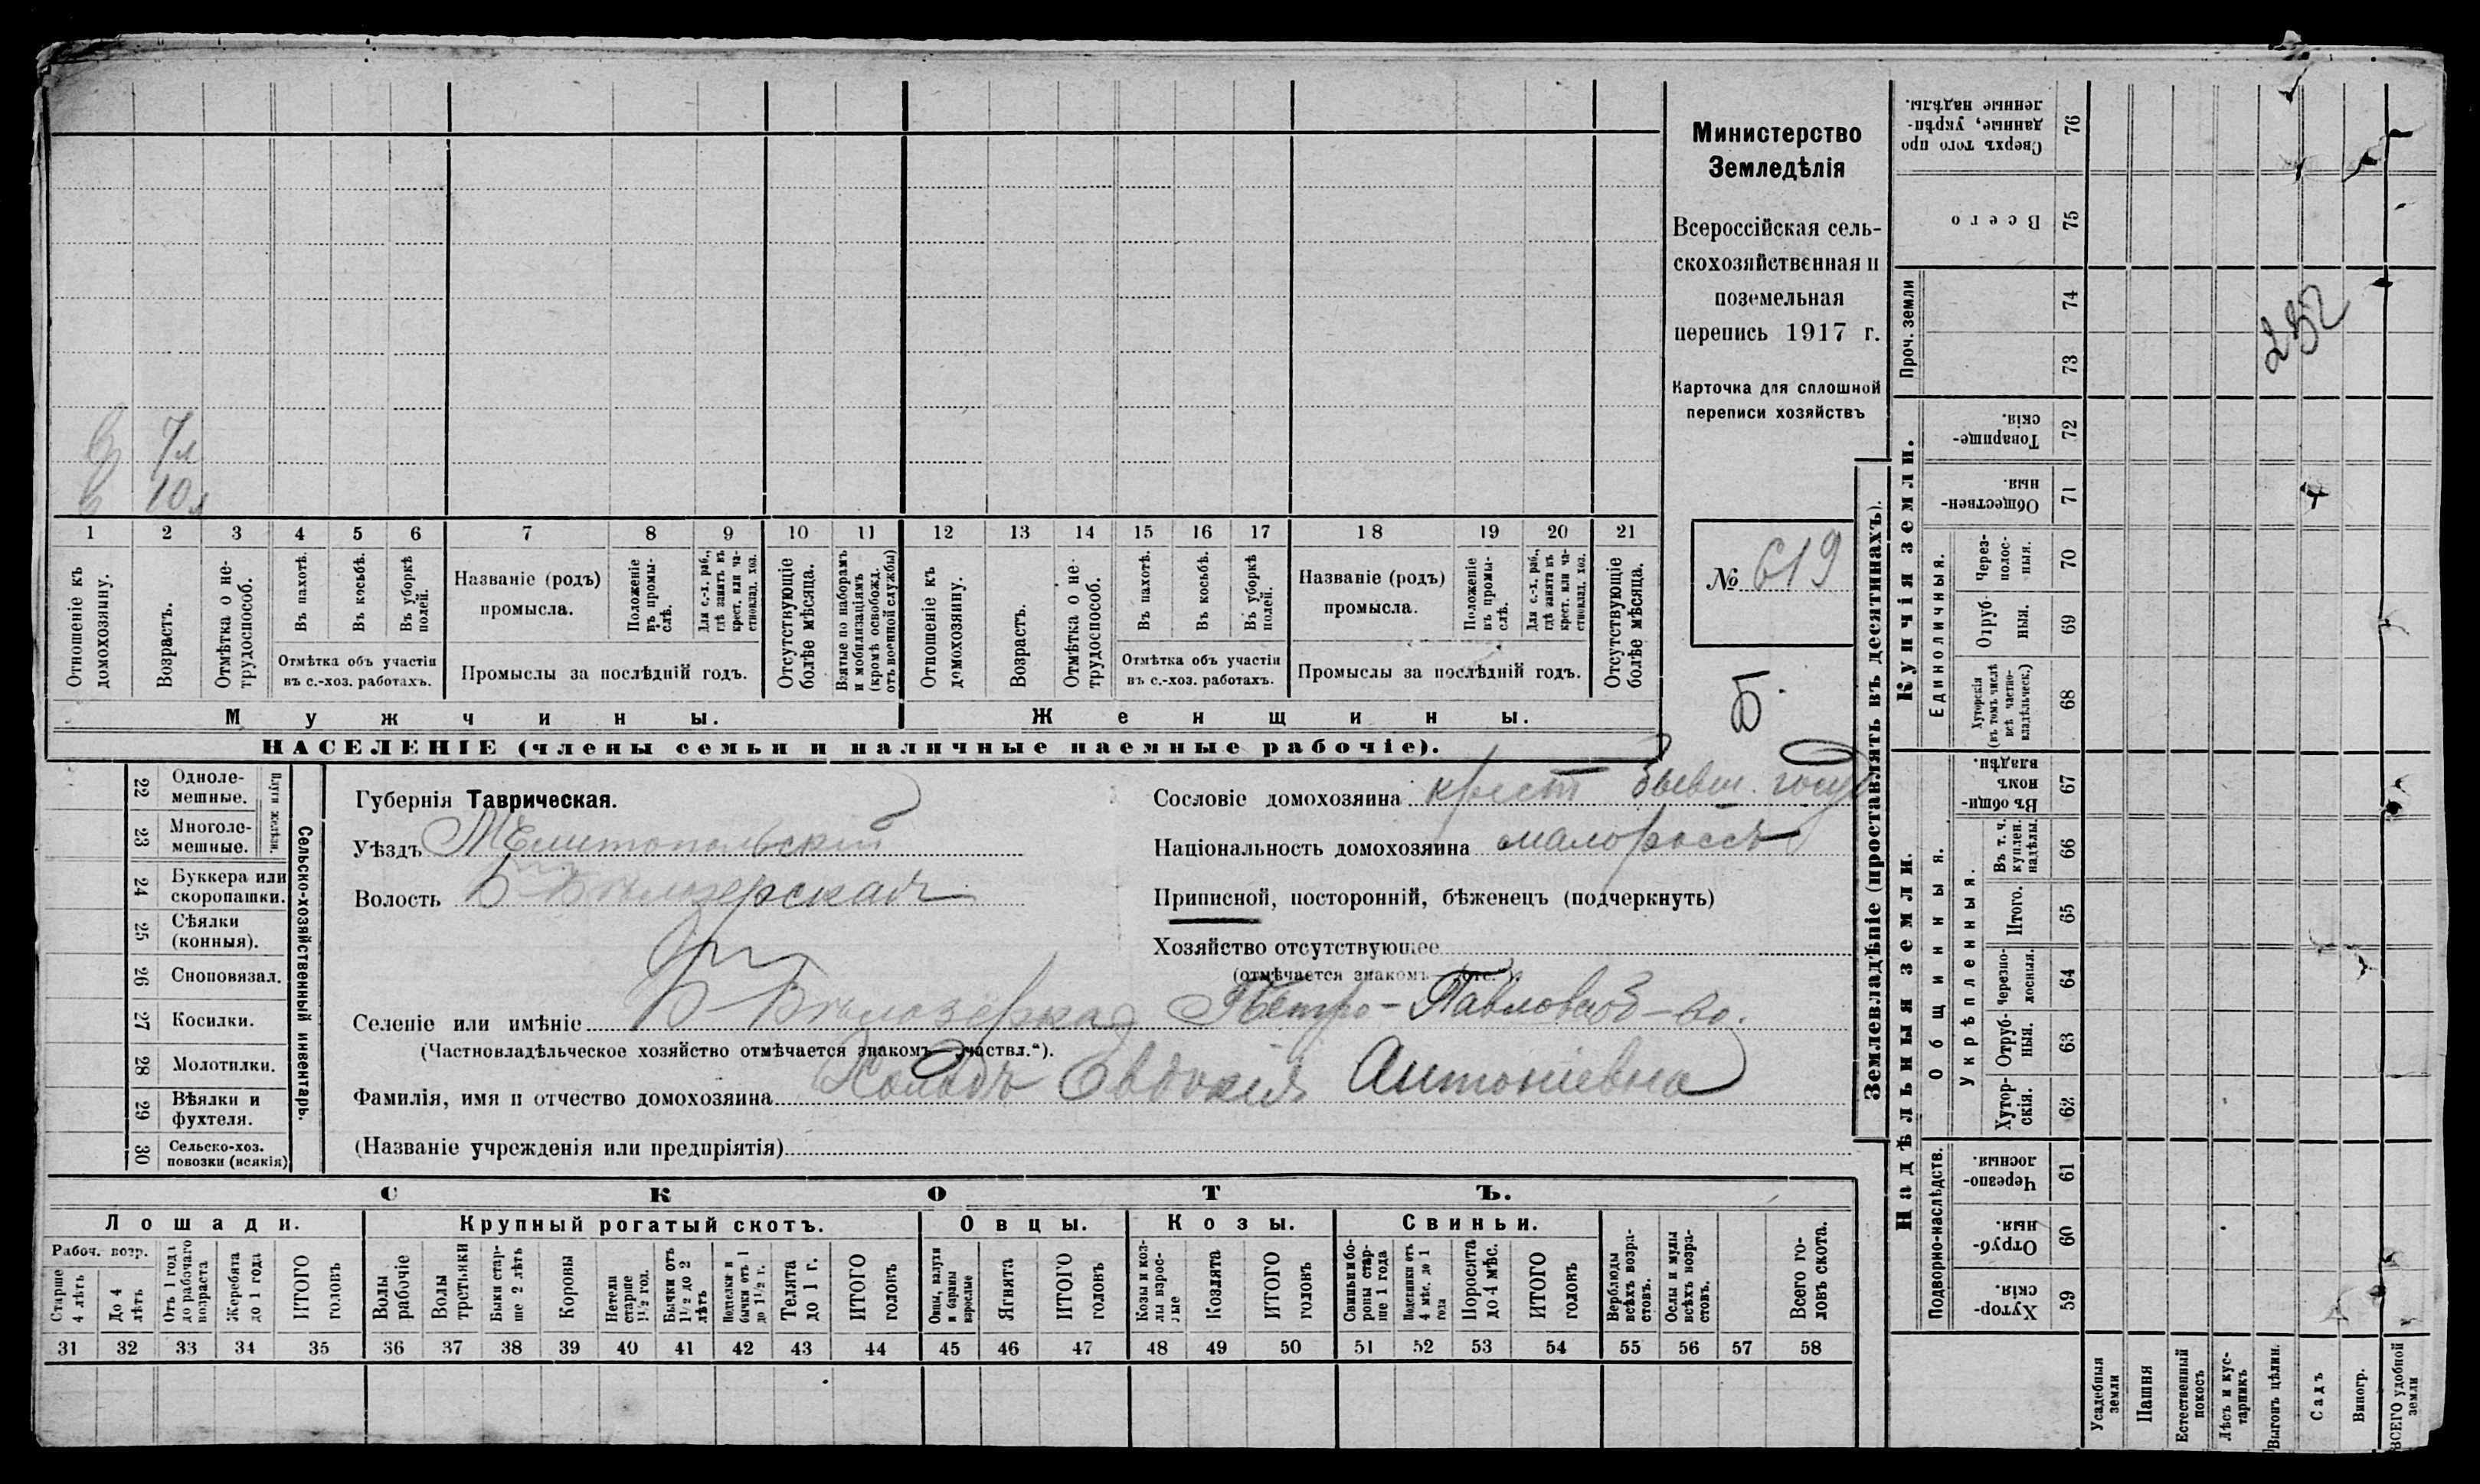 Министерство
Земледѣлія
Всероссійская сель-
скохозяйственная и
поземельная
перепись 1917 г.
Карточка для сплошной
переписи хозяйствъ
№ 619
Б.
7л
10л
1 2 3 4 5 6 7 8 9 10 11 12 13 14 15 16 17 18 19 20 21
Отношеніе къ домохозяину.
Возрастъ.
Отмѣтка о не-трудоспособ.
Въ пахотѣ.
Въ косьбѣ.
Въ уборкѣ полей.
Отмѣтка объ участіи
въ с.-хоз. работахъ.
Названіе (родъ)
промысла.
Положеніе въ промы-слѣ.
Для с.-х. раб., гдѣ занятъ въ крест. или ча-стновлад. хоз.
Промыслы за послѣдній годъ.
Отсутствующіе болѣе мѣсяца.
Взятые по наборамъ и мобилизаціямъ (кромѣ освобожд. отъ военной службы)
Отношеніе къ домохозяину.
Возрастъ.
Отмѣтка о не-трудоспособ.
Въ пахотѣ.
Въ косьбѣ.
Въ уборкѣ полей.
Отмѣтка объ участіи
въ с.-хоз. работахъ.
Названіе (родъ)
промысла.
Положеніе въ промы-слѣ.
Для с.-х. раб., гдѣ занята въ крест. или ча-стновлад. хоз.
Промыслы за послѣдній годъ.
Отсутствующіе болѣе мѣсяца.
Мужчины. Женщины.
НАСЕЛЕНІЕ (члены семьи и наличные наемные рабочіе).
22 Одноле-мешные.
23 Многоле-мешные.
Плуги желѣзн.
24 Буккера или скоропашки.
25 Сѣялки (конныя).
26 Сноповязал.
27 Косилки.
28 Молотилки.
29 Вѣялки и фухтеля.
30 Сельско-хоз. повозки (всякія)
Сельско-хозяйственный инвентарь.
Губернія Таврическая.
Уѣздъ Мелитопольскій
Волость Б-Бѣлозерская
Сословіе домохозяина крест бывш. госуд
Національность домохозяина малороссъ
Приписной, посторонній, бѣженецъ (подчеркнуть)
Хозяйство отсутствующее
(отмѣчается знакомъ „отс.“).
Селеніе или имѣніе Б-Бѣлозерка Петро-Павловск о-во.
(Частновладѣльческое хозяйство отмѣчается знакомъ „частвл.“).
Фамилія, имя и отчество домохозяина Холодъ Евдокія Антоніевна
(Названіе учрежденія или предпріятія)
СКОТЪ.
Лошади. Крупный рогатый скотъ. Овцы. Козы. Свиньи.
Рабоч. возр.
Старше 4 лѣтъ
До 4 лѣтъ
Отъ 1 года до рабочаго возраста
Жеребята до 1 года
ИТОГО головъ
Волы рабочіе
Волы третьяки
Быки стар-ше 2 лѣтъ
Коровы
Нетели старше 1½ год.
Бычки отъ 1½ до 2 лѣтъ
Подтелки и бычки отъ 1 до 1½ г.
Телята до 1 г.
ИТОГО головъ
Овцы, валухи и бараны взрослые
Ягнята
ИТОГО головъ
Козы и коз-лы взрос-лые
Козлята
ИТОГО головъ
Свиньи и бо-ровы стар-ше 1 года
Подсвинки отъ 4 мѣс. до 1 года
Поросята до 4 мѣс.
ИТОГО головъ
Верблюды всѣхъ возра-стовъ.
Ослы и мулы всѣхъ возра-стовъ.
Всего го-ловъ скота.
31 32 33 34 35 36 37 38 39 40 41 42 43 44 45 46 47 48 49 50 51 52 53 54 55 56 57 58
Землевладѣніе (проставлять въ десятинахъ).
Надѣльныя земли. Купчія земли. Проч. земли
Подворно-наслѣдств.
Общинныя.
Укрѣпленныя.
Единоличныя.
Сверхъ того про-данные, укрѣп-ленные надѣлы. 76
Всего 75
74
73
Товарище-скія. 72
Обществен-ныя. 71
Через-полос-ныя. 70
Отруб-ныя. 69
Хуторскія (въ томъ числѣ всѣ частно-владѣльческ.) 68
Въ общи-номъ владѣн. 67
Въ т. ч. куплен. надѣлы. 66
Итого. 65
Черезпо-лосныя. 64
Отруб-ныя. 63
Хутор-скія. 62
Черезпо-лосныя. 61
Отруб-ныя. 60
Хутор-скія. 59
Усадебныя земли
Пашня
Естественный покосъ
Лѣсъ и кус-тарникъ
Выгонъ цѣлин.
Садъ
Виногр.
ВСЕГО удобной земли